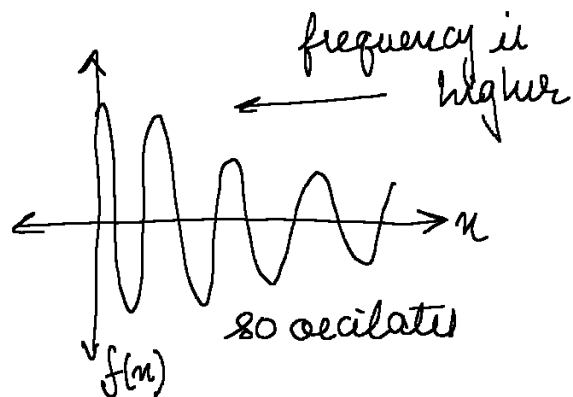 frequency is
higher
x
so oscilates
f(x)